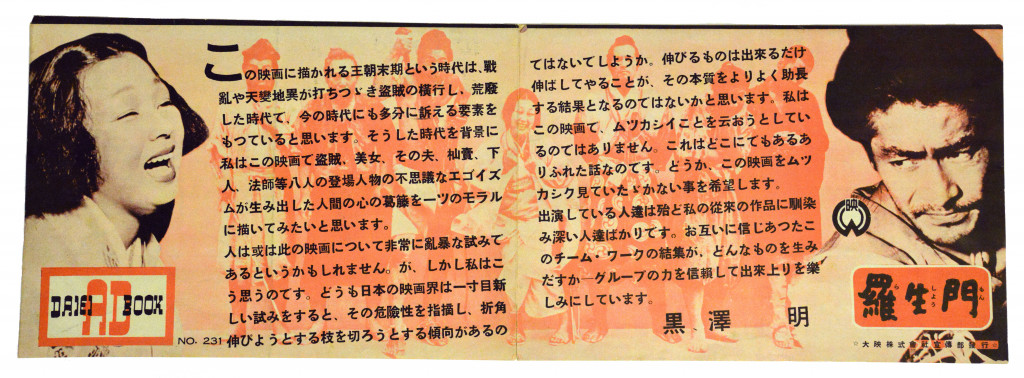 この映画に描かれる王朝末期という時代は、戰
亂や天變地異が打ちつゞき盜賊の横行し、荒廢
した時代で、今の時代にも多分に訴える要素を
もつていると思います。そうした時代を背景に
私はこの映画で盜賊、美女、その夫、杣賣、下
人、法師等八人の登場人物の不思議なエゴイズ
ムが生み出した人間の心の葛藤を一ツのモラル
に描いてみたいと思います。
人は或は此の映画について非常に亂暴な試みで
あるというかもしれません。が、しかし私はこ
う思うのです。どうも日本の映画界は一寸目新
しい試みをすると、その危險性を指摘し、折角
伸びようとする枝を切ろうとする傾向があるの
ではないでしようか。伸びるものは出來るだけ
伸ばしてやることが、その本質をよりよく助長
する結果となるのではないかと思います。私は
この映画で、ムツカシイことを云おうとしてい
るのではありません。これはどこにでもあるあ
りふれた話なのです。どうか、この映画をムツ
カシク見ていたゞかない事を希望します。
出演している人達は殆ど私の從來の作品に馴染
み深い人達ばかりです。お互いに信じあつたこ
のチーム・ワークの結集が、どんなものを生み
だすか―グループの力を信賴して出來上りを樂
しみにしています。
黒澤 明
DAIEI AD BOOK
NO. 231
映
羅生門
らしようもん
○大映株式會社宣傳部發行○